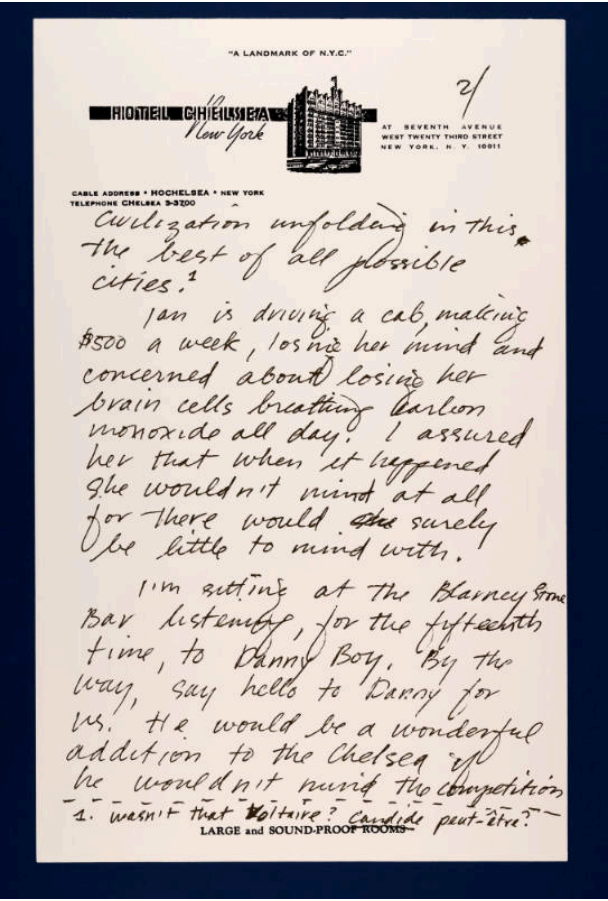 "A LANDMARK OF N.Y.C."
2/
HOTEL CHELSEA
New York
AT SEVENTH AVENUE
WEST TWENTY THIRD STREET
NEW YORK, N. Y. 10011
CABLE ADDRESS • HOCHELSEA • NEW YORK
TELEPHONE CHELSEA 3-3700
Civilization unfolding in this,
the best of all possible
cities.¹
Jan is driving a cab, making
$500 a week, losing her mind and
concerned about losing her
brain cells breathing carbon
monoxide all day. I assured
her that when it happened
she wouldn't mind at all
for there would she surely
be little to mind with.
I'm sitting at the Blarney Stone
Bar listening, for the fifteenth
time, to Danny Boy. By the
way, say hello to Danny for
us. He would be a wonderful
addition to the Chelsea if
he wouldn't mind the competition
1. Wasn't that Voltaire? Candide peut-être?
LARGE and SOUND-PROOF ROOMS